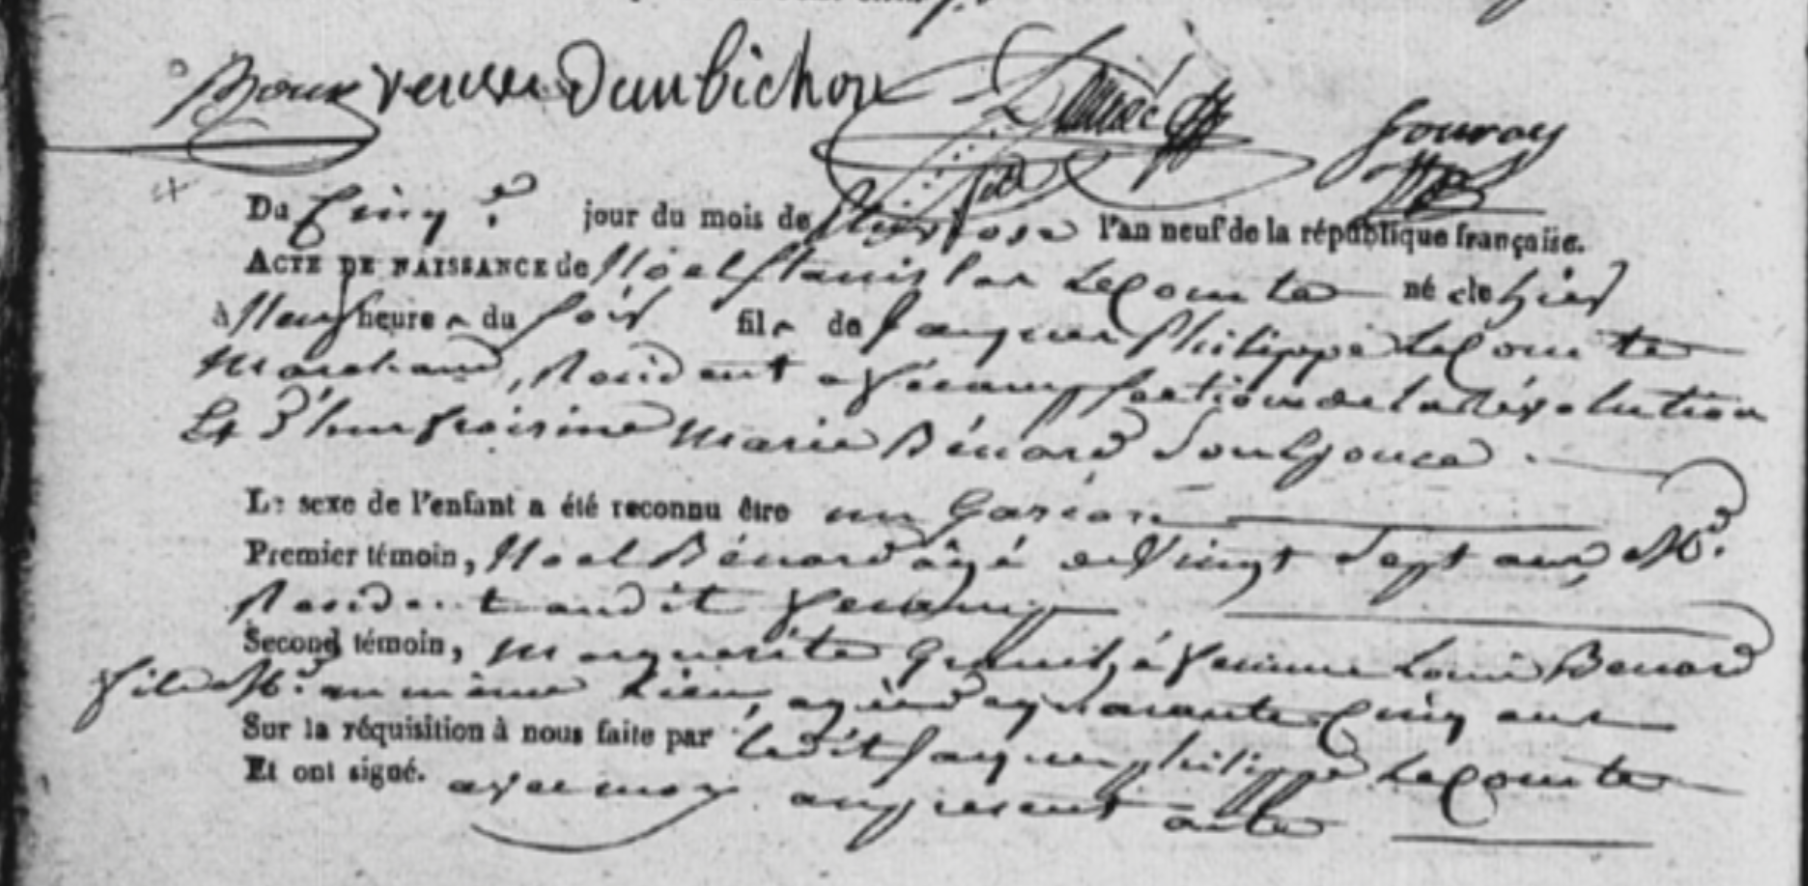 Boux veuve Danbichon Fouray
Du Cinq.e jour du mois de Nivose l'an neuf de la république française.
ACTE DE NAISSANCE de Noel Stanislas LeComte né de hier
à Neuf heures du soir fils de Jacques Philippe LeComte
Marchand, Résident a fécamp section de la Révolution
Et d'Euphrosine Marie Bénard son Epouse.
Le sexe de l'enfant a été reconnu être un Garson
Premier témoin, Noel Bénard âgé de Vingt Sept ans, Md.
Résident audit fécamp
Second témoin, Marguerite femme Louis Benard
file Md. au même Lieu, agée de quarante Cinq ans
Sur la réquisition à nous faite par ledit Jacques philippe LeComte
Et ont signé. avec moy au present acte